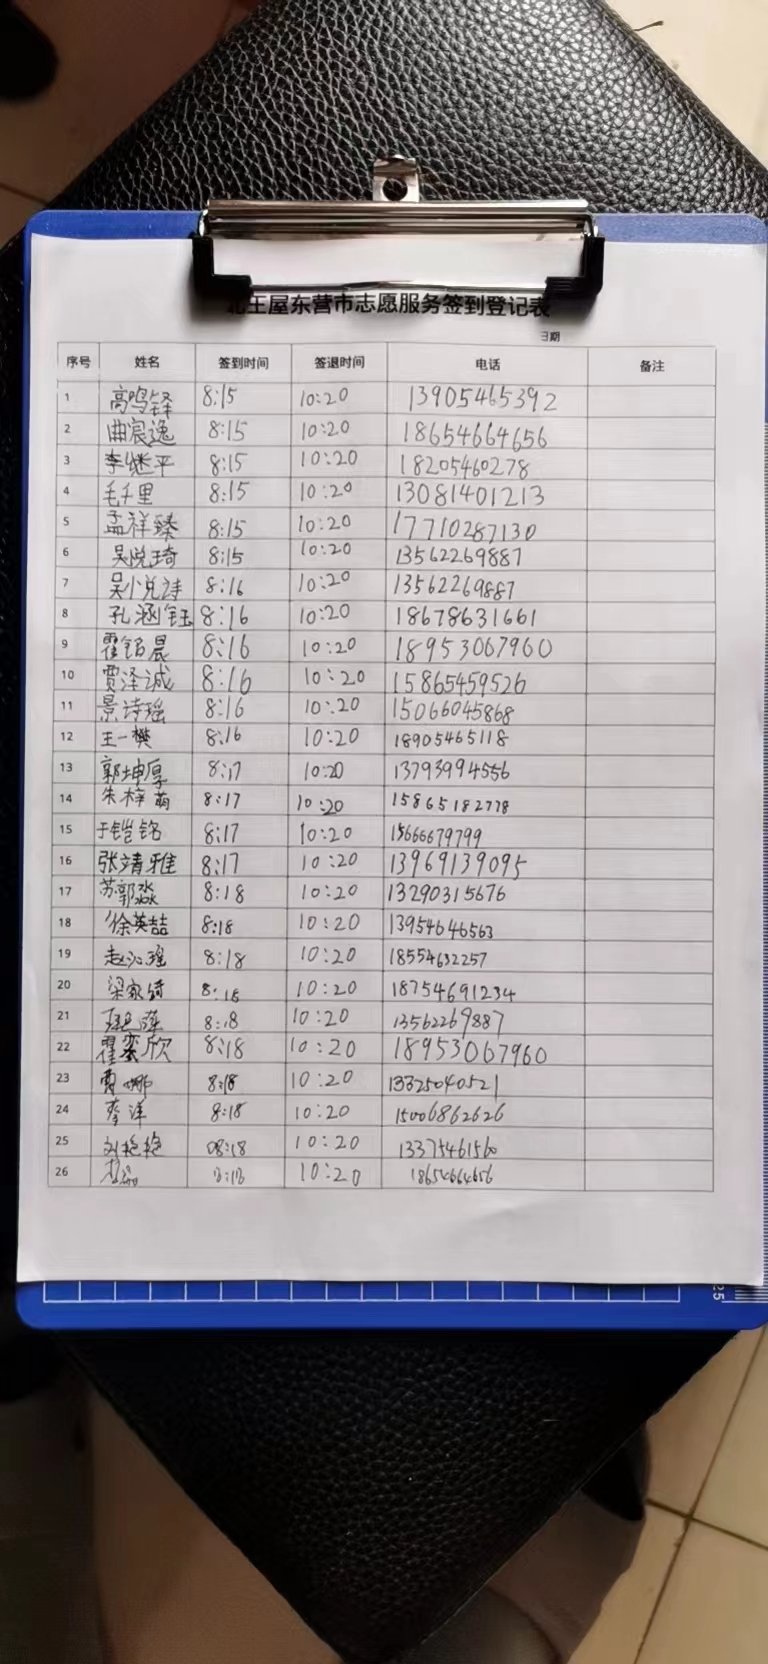 北王屋东营市志愿服务签到登记表
日期
序号 姓名 签到时间 签退时间 电话 备注
1 高鸣铎 8:15 10:20 13905465392
2 曲宸逸 8:15 10:20 18654664656
3 李继平 8:15 10:20 18205460278
4 毛千里 8:15 10:20 13081401213
5 孟祥臻 8:15 10:20 17710287130
6 吴悦琦 8:15 10:20 13562269887
7 吴小悦诗 8:16 10:20 13562269887
8 孔涵钰 8:16 10:20 18678631661
9 霍铭晨 8:16 10:20 18953067960
10 贾泽诚 8:16 10:20 15865459526
11 景诗瑶 8:16 10:20 15066045868
12 王一樊 8:16 10:20 18905465118
13 郭坤厚 8:17 10:20 13793994556
14 朱梓萌 8:17 10:20 15865182778
15 于铠铭 8:17 10:20 15666679799
16 张靖雅 8:17 10:20 13969139095
17 苏郭淼 8:18 10:20 13290315676
18 徐英喆 8:18 10:20 13954646563
19 赵沁瑶 8:18 10:20 18554632257
20 梁家绮 8:18 10:20 18754691234
21 8:18 10:20 13562269887
22 霍栾欣 8:18 10:20 18953067960
23 曹娜 8:18 10:20 13325040521
24 8:18 10:20 15006862626
25 刘艳艳 08:18 10:20 13375461560
26 8:18 10:20 18654664656
25